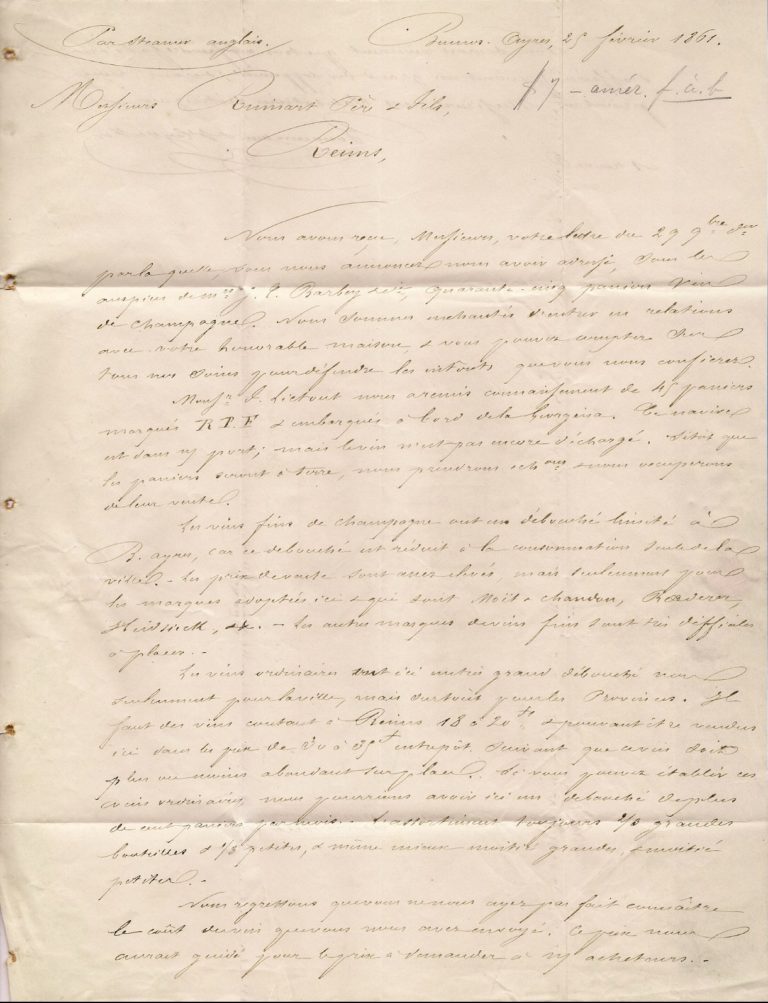 Par steamer anglais. Buenos-Ayres, 25 février 1861.
Messieurs Ruinart Père & Fils, $ 7 - amér. f. à. b
Reims,
Nous avons reçu, Messieurs, votre lettre du 29 9bre dern
par laquelle vous nous annoncez nous avoir adressé, sous les
auspices de mrs J. Barbey & Cie, quarante-cinq paniers vin
de champagne. Nous sommes enchantés d'entrer en relations
avec votre honorable maison, & vous pouvez compter sur
tous nos soins pour défendre les intérêts que vous nous confierez.
Monsr J. Lictout nous a remis connaissement de 45 paniers
marqués R P F & embarqués à bord de la . Ce navire
est dans n/ port; mais le vin n'est pas encore déchargé. Sitôt que
les paniers seront à terre, nous prendrons echons & nous occuperons
de leur vente.
Les vins fins de champagne ont un débouché limité à
B. ayres, car ce débouché est réduit à la consommation seule de la
ville. - Les prix de vente sont assez élevés, mais seulement pour
les marques adoptées ici & qui sont Moët & chandon, Rœderer,
Heidsieck, &. - Les autres marques de vins fins sont très difficiles
à placer. -
Les vins ordinaires ont ici un très grand débouché non
seulement pour la ville, mais surtout pour les Provinces. Il
faut des vins coutant à Reims 18 à 20fs & pouvant être vendus
ici dans les prix de 30 à 35f entrepôt, suivant que ce vin soit
plus ou moins abondant sur place. Si vous pouvez établir ces
vins ordinaires, nous pourrions avoir ici un débouché de plus
de cent paniers par mois. - L'assortiment toujours 2/3 grandes
bouteilles & 1/3 petites, & même mieux moitié grandes, & moitié
petites. -
Nous regrettons que vous ne nous ayez pas fait connaître
le coût du vin que vous nous avez envoyé. Ce prix nous
aurait guidé pour le prix à demander à n/ acheteurs. -